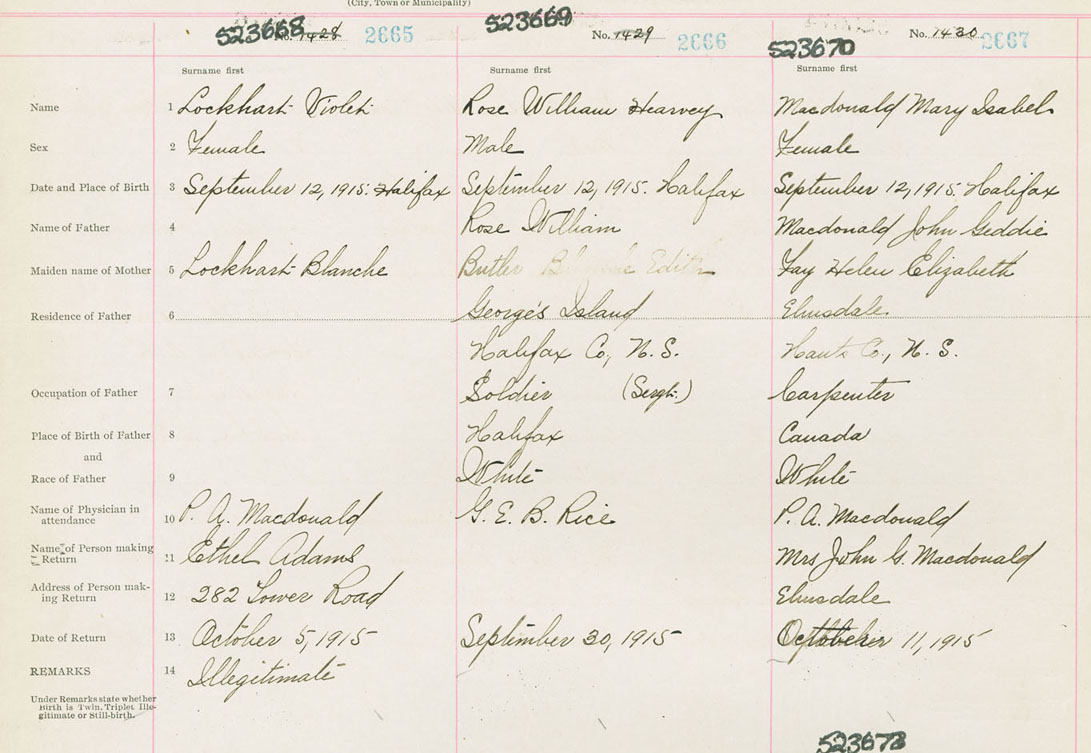 (City, Town or Municipality)
523668 No. 1428 2665
523669 No. 1429 2666
523670 No. 1430 2667
Surname first Surname first Surname first
Name 1 Lockhart Violet Rose William Hearvey Macdonald Mary Isabel
Sex 2 Female Male Female
Date and Place of Birth 3 September 12, 1915. Halifax September 12, 1915. Halifax September 12, 1915. Halifax
Name of Father 4 Rose William Macdonald John Geddie
Maiden name of Mother 5 Lockhart Blanche Butler Edith Fay Helen Elizabeth
Residence of Father 6 George's Island Elmsdale
Halifax Co, N. S. Hants Co., N. S.
Occupation of Father 7 Soldier (Sergt.) Carpenter
Place of Birth of Father 8 Halifax Canada
and
Race of Father 9 White White
Name of Physician in
attendance 10 P. A. Macdonald G. E. B. Rice P. A. Macdonald
Name of Person making
Return 11 Ethel Adams Mrs John G. Macdonald
Address of Person mak-
ing Return 12 282 Tower Road Elmsdale
Date of Return 13 October 5, 1915 September 30, 1915 October 11, 1915
REMARKS 14 Illegitimate
Under Remarks state whether
Birth is Twin, Triplet, Ille-
gitimate or Still-birth.
523673